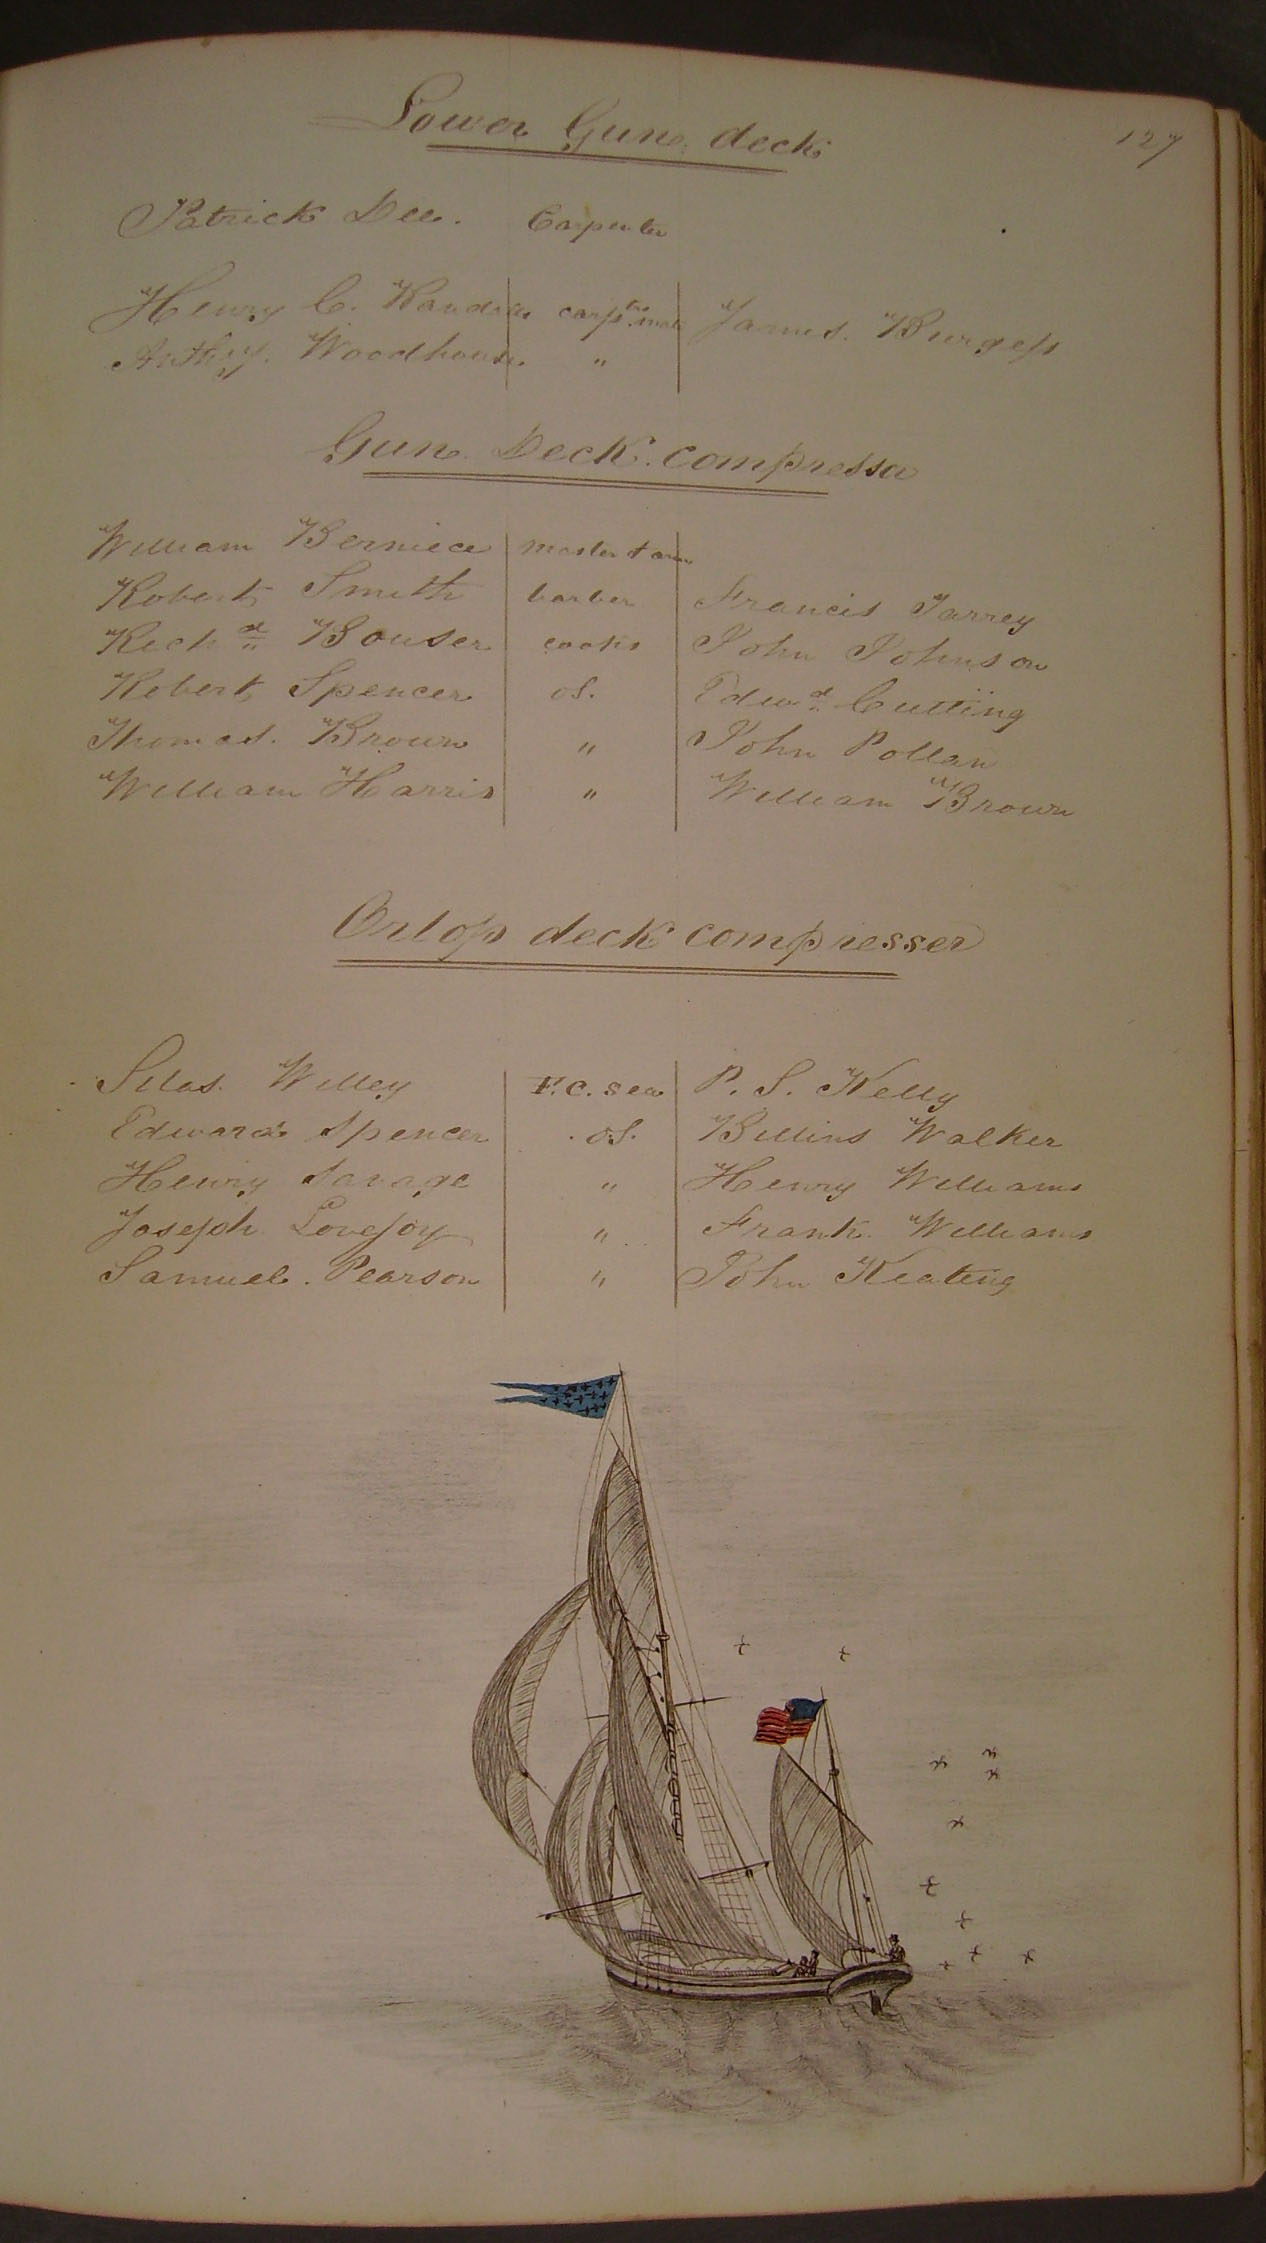 Lower Gun deck
127
Patrick Dee. Carpenter
Henry C. carp.trs mate James. Burgess
Anthy. Woodhouse. "
Gun Deck. compressor
William Berniece master t arm
Robert Smith barber Francis Tarrey
Rich.d Bouser cooks John Johnson
Robert Spencer os. Edw.d Cutting
Thomas. Brown " John Pollan
William Harris " William Brown
Orlop deck compresser
Silas. Willey F.C. sea P. S. Kelly
Edward Spencer os. Billins Walker
Henry Savage " Henry Williams
Joseph Lovejoy " Frank Williams
Samuel. Pearson " John Keating